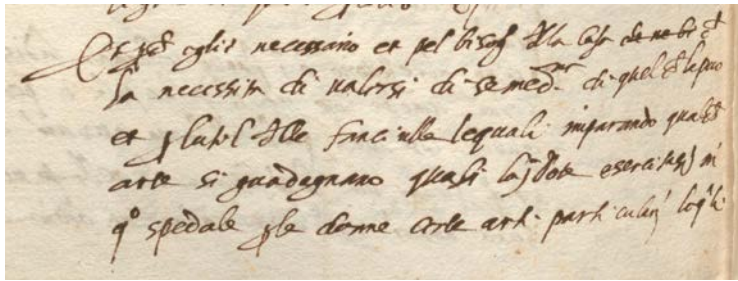 Et p̱ch̄ egli è necessario et pel bisog.o d̄lla Casa
la necessita di valersi di se med.mi di quel ch̄ la puo
et p̱ lutil d̄lle fanciulle lequali imparando qualch̄
arte si guadagnano quasi la dote esercitasi in
q.o spedale p̱ le donne certe arti particulari leq.li